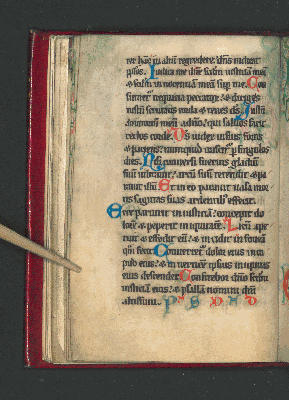 ter hāc in altū regredere: dn̄s iudicat
pplōs. Iudica me dn̄e scdm̄ iusticiā meā
& scdm̄ innocentiā meā sup me. Con
sumet nequitia peccatoꝝ: & diriges
iustū scrutans corda & renes ds̄. Iustū
adiutoriū meū a dn̄o: qui saluos facit
rectos corde. Ds̄ iudex iustus fortis
& paciens: nunquid irascit̉ p singulos
dies. Nisi conuersi fueritis gladiū
suū uibrabit: arcū suū tetendit & pa
rauit illū. Et in eo parauit uasa mor
tis sagittas suas ardentib; effecit.
Ecce parturit iniusticiā: concepit do
lorē & peperit iniquitatē. Lacū ape
ruit & effodit eū: & incidit in foueā
quā fecit. Conuertet̉ dolor eius in ca
pud eius: & in uerticē ipsius iniquitas
eius descendet. Confitebor dn̄o scdm̄
iusticiā eius: & psallā nomini dn̄i
altissimi.